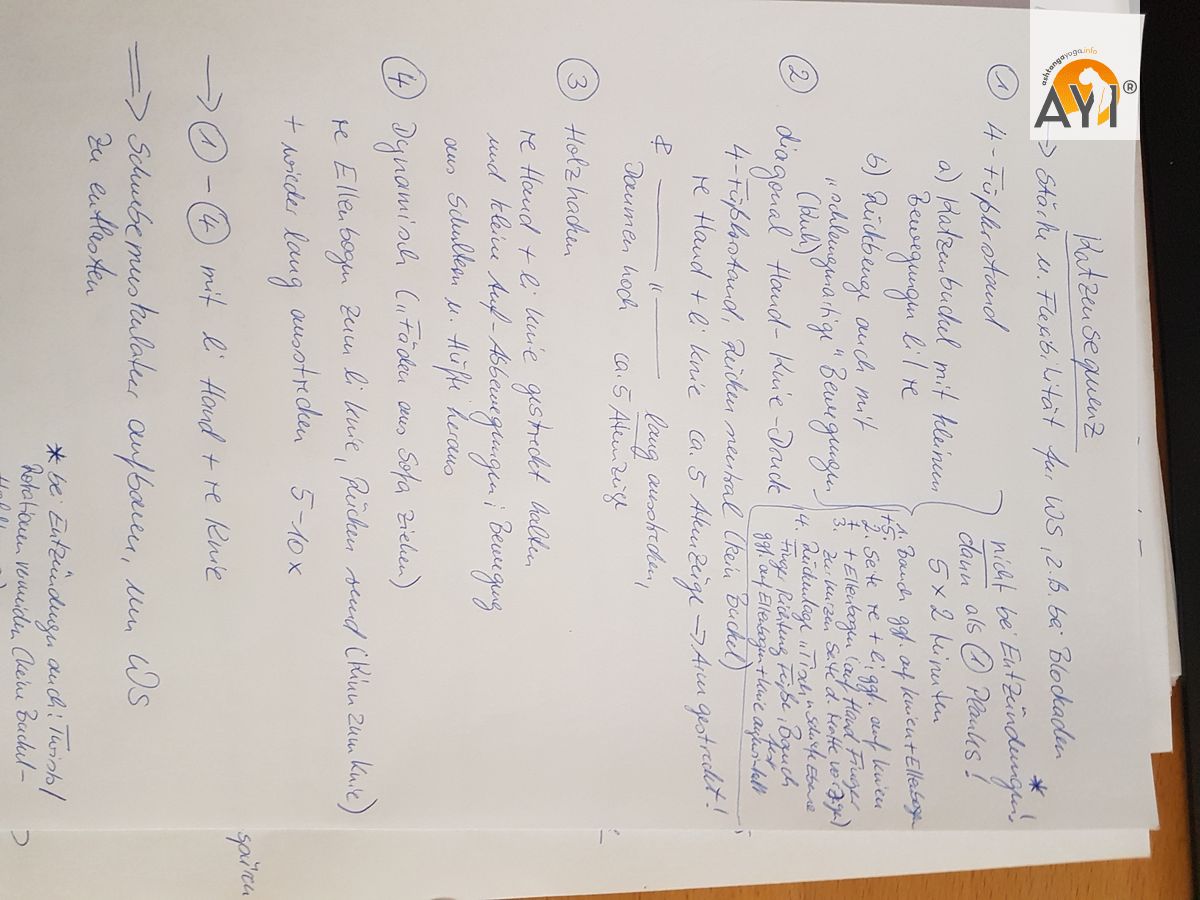 Katzensequenz
→ Stärke u. Flexibilität für WS, z.B. bei Blockaden *
① 4-Füßlerstand
a) Katzenbuckel mit kleinen
Bewegungen li/re
b) Rückbeuge auch mit
(Kuh)
"schlangenartige" Bewegungen
nicht bei Entzündungen!
dann als ① Planks!
5 x 2 Minuten
1. Bauch ggf. auf Knien + Ellebogen
2. Seite re + li ggf. auf Knien
+ Ellenbogen (auf Hand Finger
3. zur kurzen Seite d. Matte
4. Rückenlage "Tisch" schiefe Ebene
Finger Richtung Füße, Bauch
ggf. auf Ellenbogen + Knie
② diagonal Hand-Knie-Druck
4-Füßlerstand, Rücken neutral (kein Buckel)
re Hand + li Knie ca. 5 Atemzüge → Arm gestreckt!
& —— " —— lang ausstrecken,
Daumen hoch ca. 5 Atemzüge
③ Holzhacken
re Hand + li Knie gestreckt halten
und kleine Auf-Abbewegungen; Bewegung
aus Schultern u. Hüfte heraus
④ Dynamisch ("Fäden aus Sofa ziehen)
re Ellenbogen zum li Knie, Rücken rund (Kinn zum Knie)
+ wieder lang ausstrecken 5-10x
→ ① - ④ mit li Hand + re Knie
⇒ Schubermuskulatur aufbauen, um WS
zu entlasten
* bei Entzündungen auch: Twists /
Rotationen vermeiden (keine Buckel-
spüren
ashtangayoga.info
AYI®